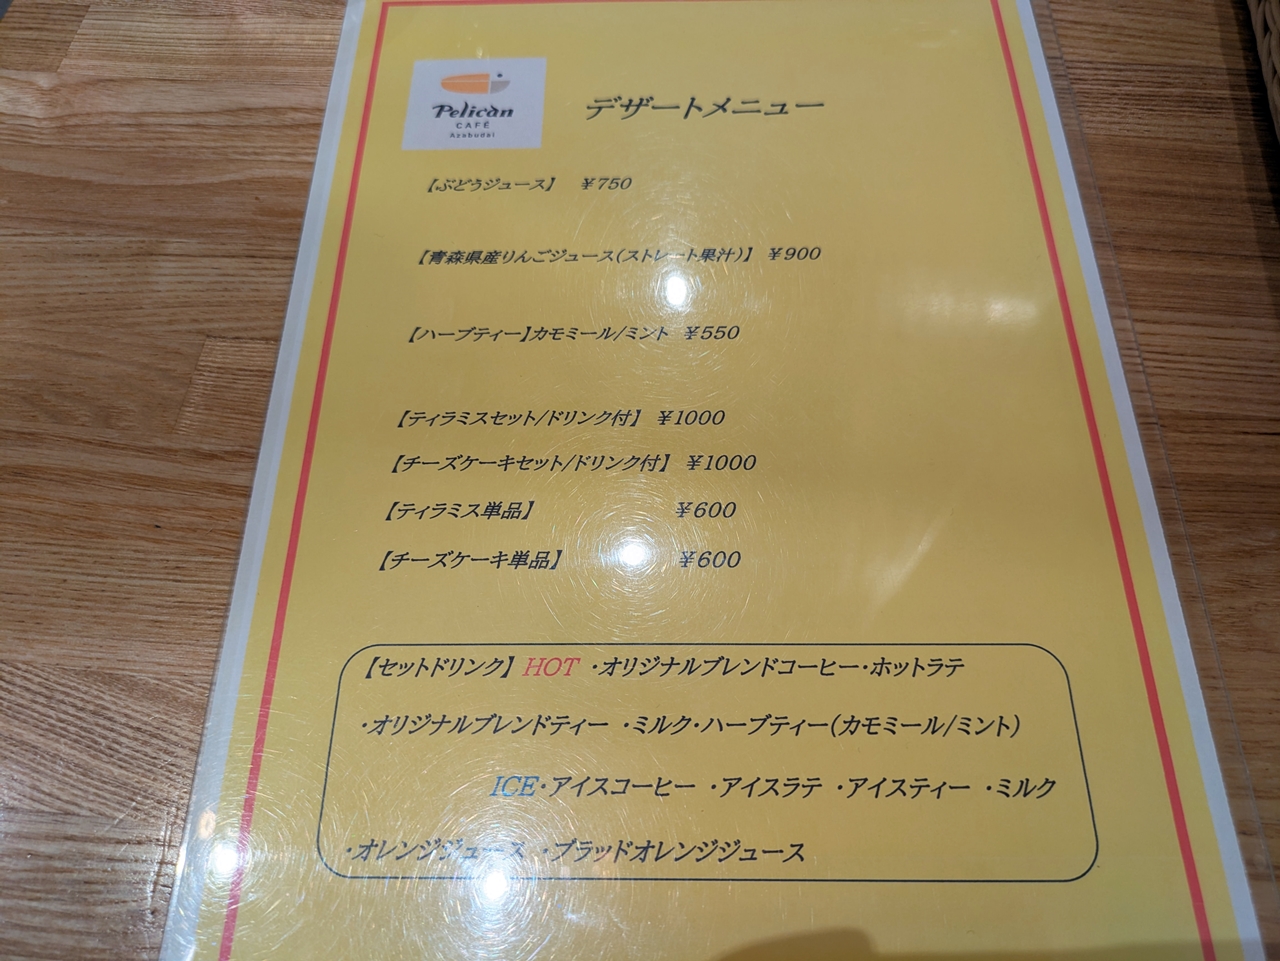 Pelican
CAFÉ
Azabudai
デザートメニュー
【ぶどうジュース】 ￥750
【青森県産りんごジュース(ストレート果汁)】 ￥900
【ハーブティー】カモミール/ミント ￥550
【ティラミスセット/ドリンク付】 ￥1000
【チーズケーキセット/ドリンク付】 ￥1000
【ティラミス単品】 ￥600
【チーズケーキ単品】 ￥600
【セットドリンク】 HOT ・オリジナルブレンドコーヒー・ホットラテ
・オリジナルブレンドティー ・ミルク・ハーブティー(カモミール/ミント)
ICE・アイスコーヒー ・アイスラテ ・アイスティー ・ミルク
・オレンジジュース ・ブラッドオレンジジュース